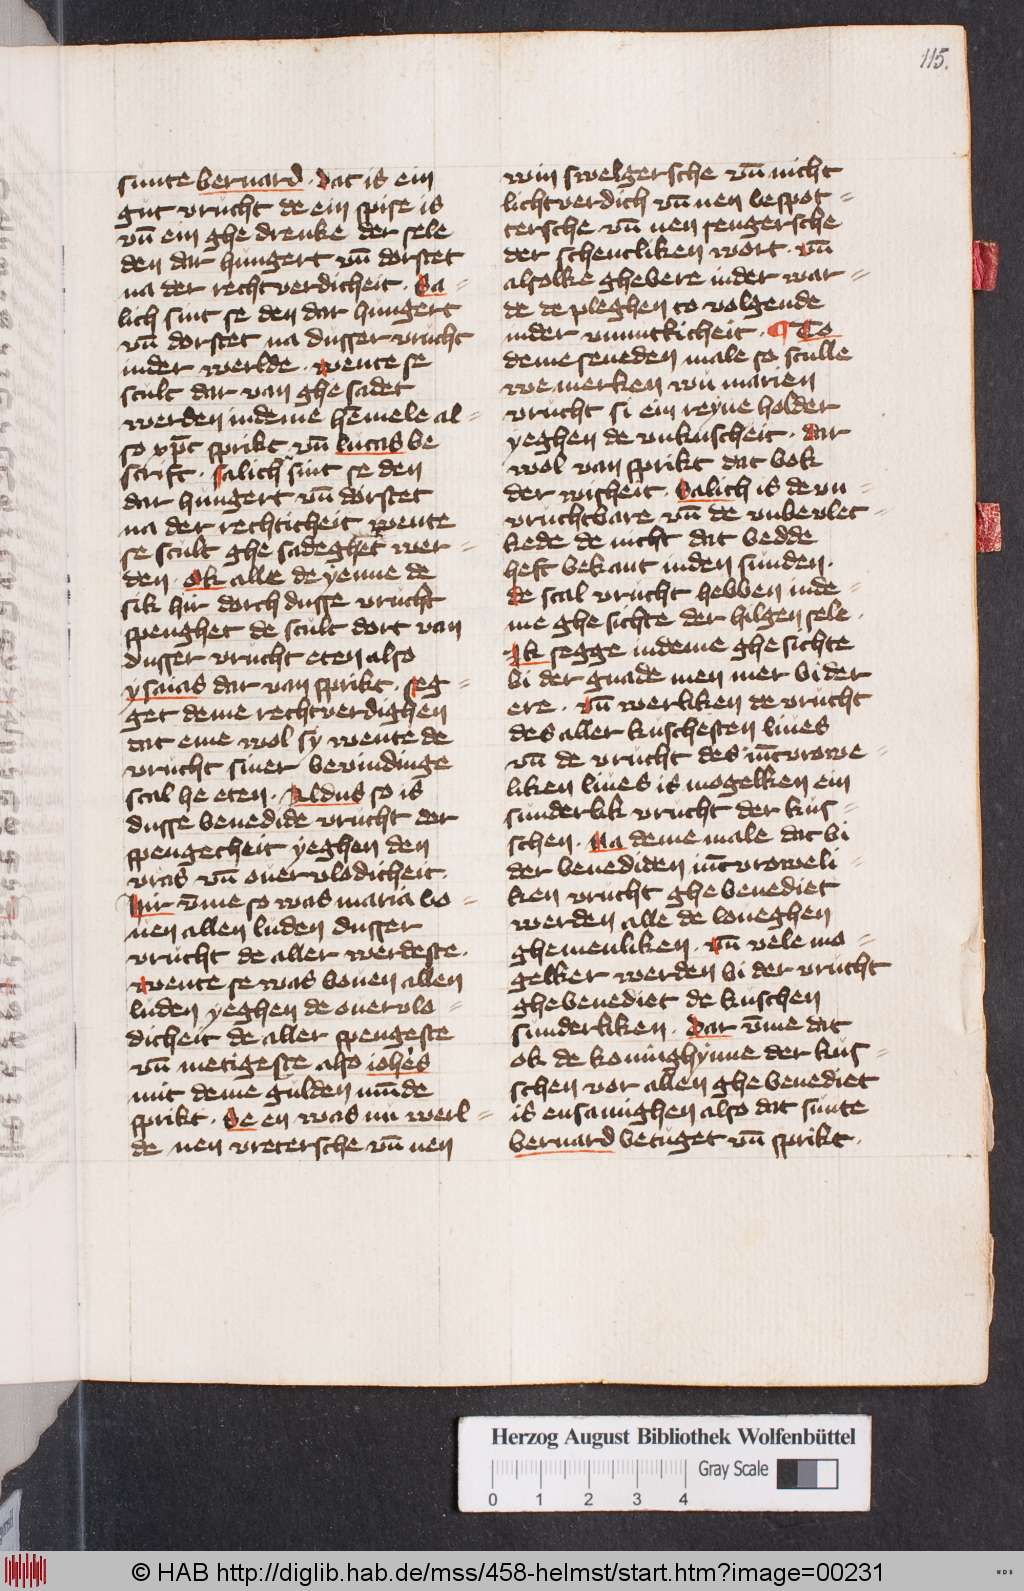 115.
sunte bernard · Dat is ein
gut vrucht de ein spise is
vn̄ ein ghe drenke der sele
den dar hungert vn̄ dorstet
na der rechtverdicheit · Sa-
lich sint se den dar hungert
vn̄ dorstet na dusser vrucht
inder werlde · wente se
scult dar van ghe sadet
werden indeme hemele al-
so xp̄c sprikt vn̄ lucas be
scrift · salich sint se den
dar hungert vn̄ dorstet
na der rechticheit wente
se scult ghe sadeghet wer-
den · Ok alle de yenne de
sik hir dorch dusse vrucht
spenghet de scult dort van
dusser vrucht eten also
ysaias dar van sprikt · seg-
get deme rechtverdighen
dat eme wol sy wente de
vrucht siner bevindinge
scal he eten · Aldus so is
dusse benedide vrucht der
spengecheit yeghen den
vras vn̄ ouer vlodicheit ·
Hir v̄me so was maria bo-
uen allen luden dusser
vrucht de aller werdeste ·
wente se was bouen allen
luden yeghen de ouervlo-
dicheit de aller spengeste
vn̄ metigeste also ioh̄es
mit deme gulden mu̅de
sprikt · Se en was nu werl-
de nen vretersche vn̄ nen
win swelgersche vn̄ nicht
lichtverdich vn̄ nen bespot-
tersche vn̄ nen sengersche
der schentliken wort · vn̄
alsolke ghevere inder war-
de de pleghen to volgende
inder vnnutticheit · ¶ To
deme seueden male so sculle
we merken wu marien
vrucht si ein reyne holder
yeghen de vnkuscheit · dar
wol van sprikt dat bok
der wisheit · Salich is de vn-
vruchtbare vn̄ de vnbevlec-
kede de nicht dat bedde
heft bekant inden sunden ·
de scal vrucht hebben inde-
me ghe sichte der hilgen sele ·
Ik segge indeme ghe sichte
bi der gnade men mer bi der
ere · vn̄ werliken de vrucht
des aller kuschesten liues
vn̄ de vrucht des iu̅cvrowe-
liken liues is mogelken ein
sunderlik vrucht der kus-
schen · Na deme male dat bi
der benediden iu̅cvroweli-
ken vrucht ghe benediet
werden alle de loueghen
ghemenliken · vn̄ vele mo-
gelker werden bi der vrucht
ghebenediet de kuschen
sunderliken · Dar v̄me dat
ok de koninghynne der kus-
schen vor allen ghe benediet
is ensamighen also dat sunte
bernard betuget vn̄ sprikt ·
Herzog August Bibliothek Wolfenbüttel
Gray Scale
0 1 2 3 4
© HAB http://diglib.hab.de/mss/458-helmst/start.htm?image=00231